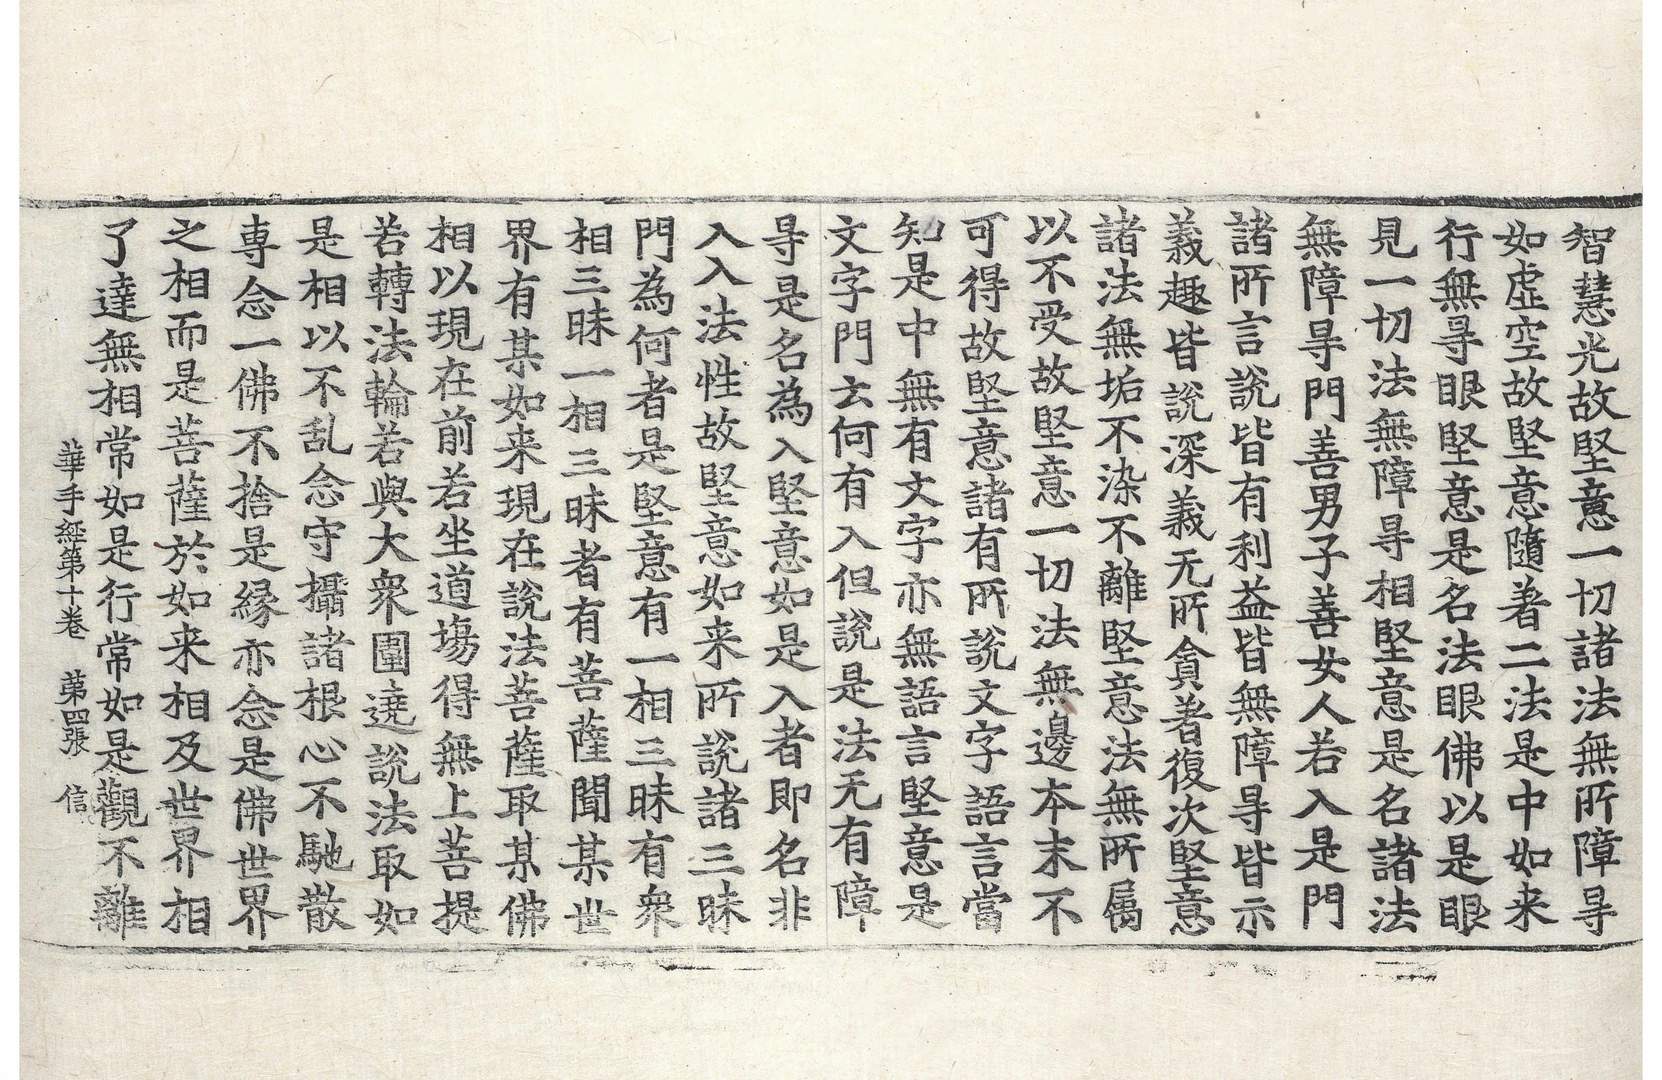 智慧光故堅意一切諸法無所障㝵
如虛空故堅意隨著二法是中如来
行無㝵眼堅意是名法眼佛以是眼
見一切法無障㝵相堅意是名諸法
無障㝵門善男子善女人若入是門
諸所言說皆有利益皆無障㝵皆示
義趣皆說深義无所貪著復次堅意
諸法無垢不染不離堅意法無所属
以不受故堅意一切法無邊本末不
可得故堅意諸有所說文字語言當
知是中無有文字亦無語言堅意是
文字門云何有入但說是法无有障
㝵是名為入堅意如是入者即名非
入入法性故堅意如来所說諸三昧
門為何者是堅意有一相三昧有衆
相三昧一相三昧者有菩薩聞某世
界有某如来現在說法菩薩取某佛
相以現在前若坐道場得無上菩提
若轉法輪若與大衆圍遶說法取如
是相以不乱念守攝諸根心不馳散
専念一佛不捨是緣亦念是佛世界
之相而是菩薩於如来相及世界相
了達無相常如是行常如是觀不離
華手經第十卷　第四張　信